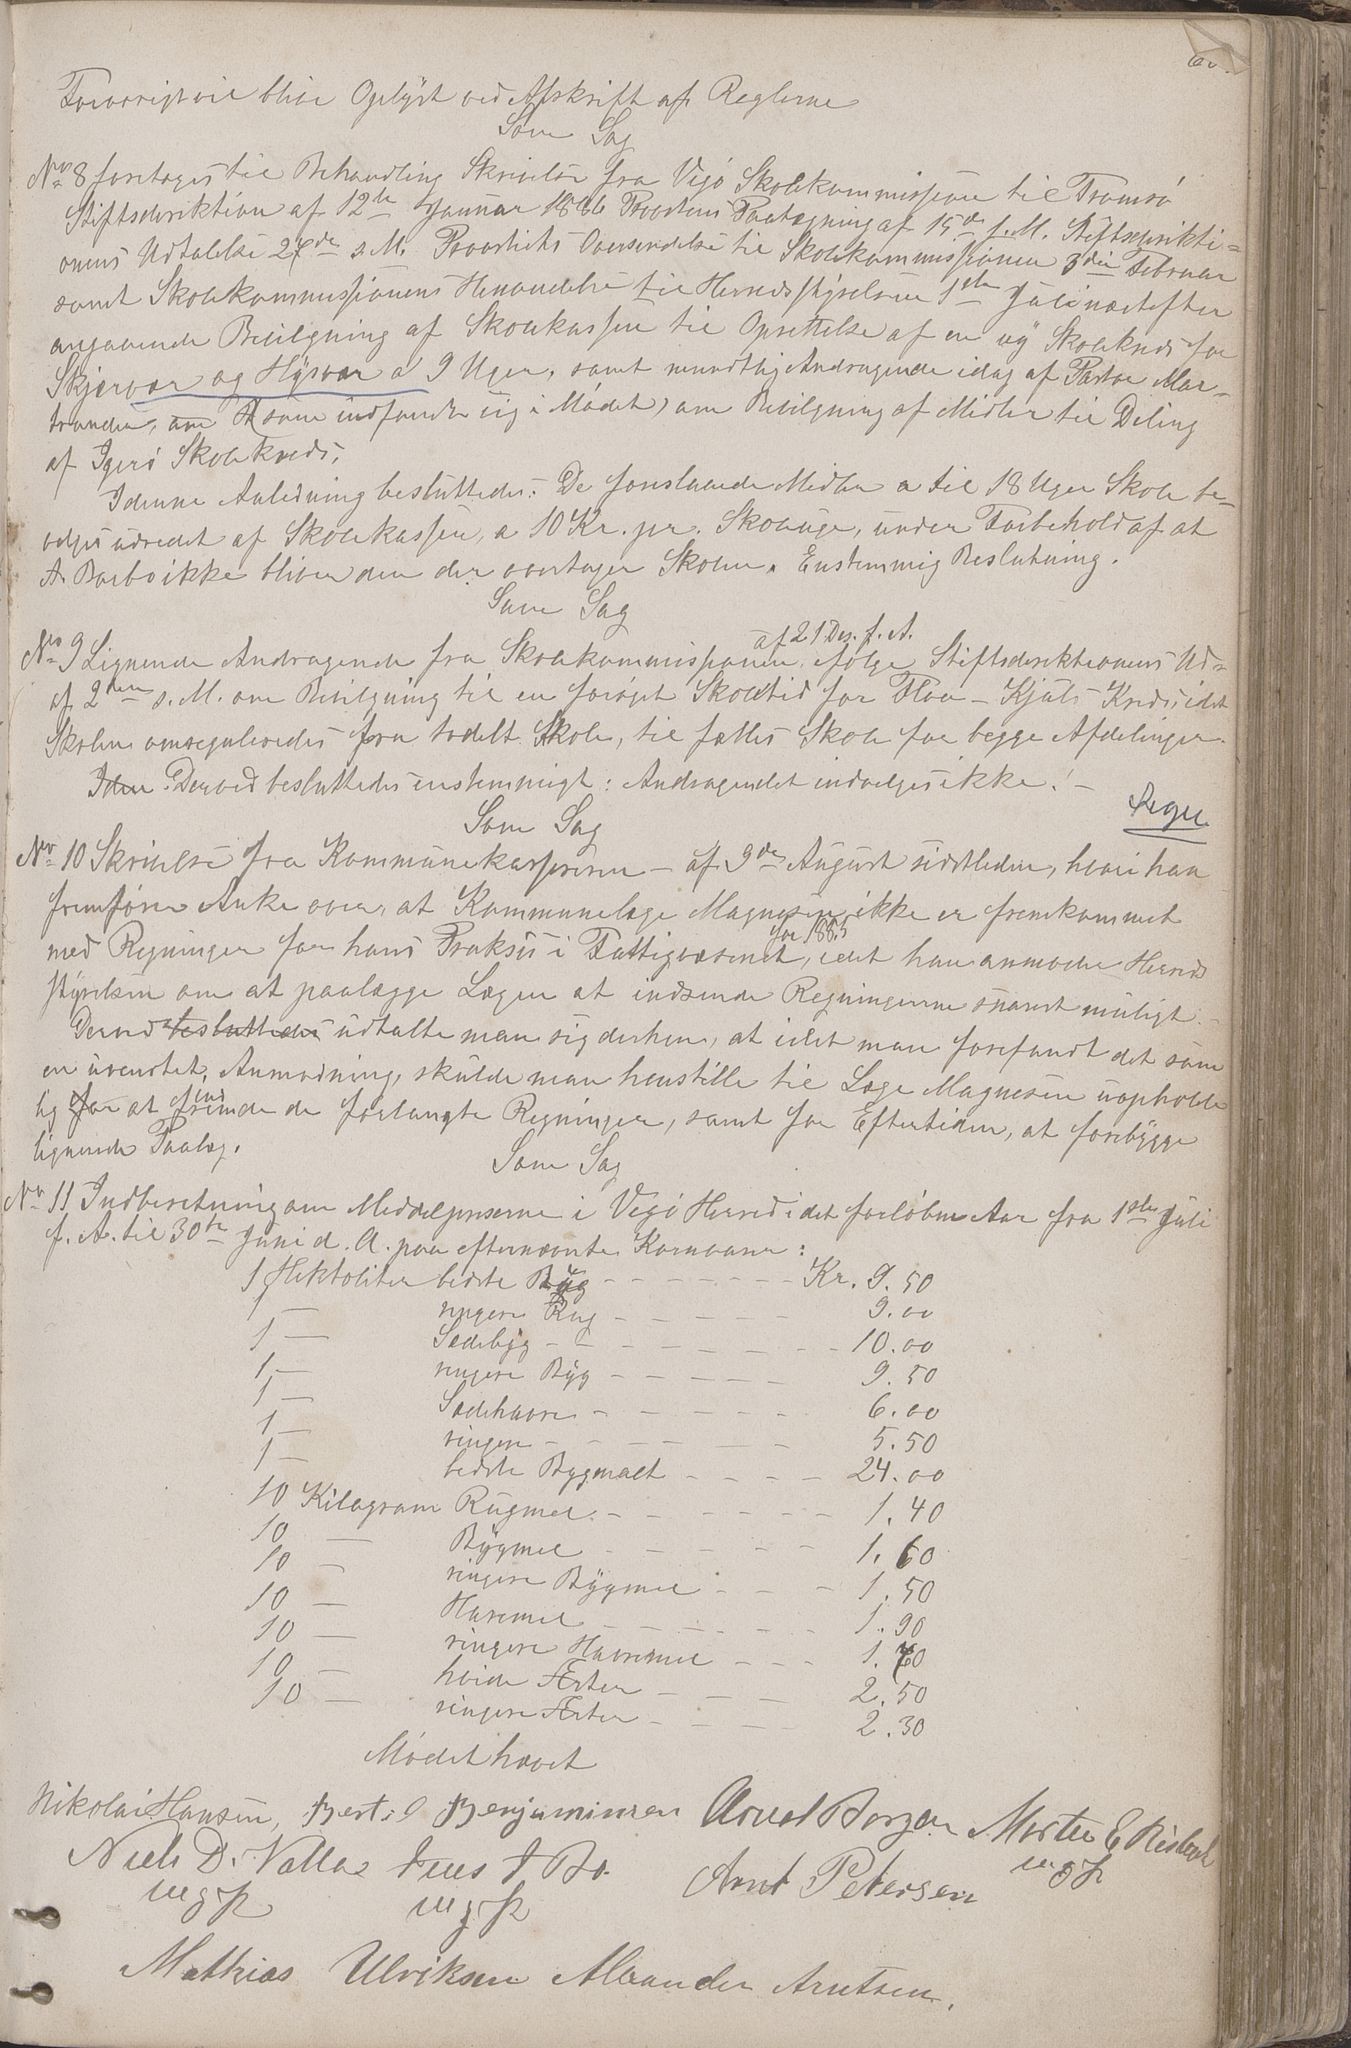 Forøvrigt vil blive Oplyst ved Afskrift af Reglerne
Sam Sag
No 8 foretoges til Behandling Skrivelse fra Vegø Skolekommission til Tromsø
Stiftsdirektion af 12te Januar 1886 Provstens Paategning af 15de s. M. Stiftsdirekti-
onens Udtalelse 27de s. M. Provstiets Oversendelse til Skolekommissionen 3die Februar
samt Skolekommissionens Henvendelse til Herredsstyrelsen 1ste Juli næstefter
angaaende Bevilgning af Skolekassen til Oprettelse af en ny Skolekreds for
Skjærvær og Hysvær a 9 Uger, samt mundtlig Andragende idag af Pastor Mar-
strander, (som indfandt sig i Mødet) om Bevilgning af Midler til Deling
af Igerø Skolekreds.
I denne Anledning besluttedes: De foreslaaede Midler a til 18 Uger Skole be-
vilges udredet af Skolekassen, a 10 Kr. pr. Skoleuge, under Forbehold af at
A. Barbo ikke bliver den der overtager Skolen. Enstemmig Beslutning.
Sam Sag
af 21 Des. f. A.
No 9 Lignende Andragende fra Skolekommissionen, ifølge Stiftsdirektionens Ud-
af 2den s. M. om Bevilgning til en forøget Skoletid for Floa - Kjuls Kreds, idet
Skolen omreguleredes fra todelt Skole, til fælles Skole for begge Afdelinger.
Iden Derved besluttedes enstemmigt: Andragendet indvilges ikke! -
Læger
Sam Sag
No 10 Skrivelse fra Kommunekassereren - af 9de August sidstleden, hvori han
fremfører Anke over, at Kommunelæge Magnesen ikke er fremkommet
for 1885
med Regninger for hans Praksis i Fattigvæsenet, idet han anmoder Herreds
styrelsen om at paalægge Lægen at indsende Regningerne snarest muligt.
Derved besluttedes udtalte man sig derhen, at idet man forefandt det som
en uventet Anmodning, skulde man henstille til Læge Magnesen uopholde
lig for at indsende de forlangte Regninger, samt for Eftertiden, at forebygge
lignende Paalæg.
Sam Sag
No 11 Indberetning om Middelpriserne i Vegø Herred i det forløbne Aar fra 1ste Juli
f. A. til 30te Juni d. A. paa efternævnte Kornvarer:
1 Hektoliter bedste Byg - - - - - - - Kr. 9.50
1 — ringere Rug - - - - - 9.00
1 — Sædebyg - - - - - - - 10.00
1 — ringere Byg - - - - - 9.50
1 — Sædehavre - - - - - 6.00
1 — ringere - - - - - - 5.50
1 — bedste Bygmalt - - - - 24.00
10 Kilogram Rugmel - - - - - - 1.40
10 — Bygmel - - - - - - 1.60
10 — ringere Bygmel - - - 1.50
10 — Havremel - - - - - - 1.90
10 — ringere Havremel - - - 1.70
10 — hvide Ærter - - - - 2.50
10 — ringere Ærter - - - - 2.30
Mødet hævet
Nikolai Hansen, Bertil Benjaminsen Arnol Borgen Morten E Risbek
Niels D. Valla Jens J Bø. Arnt Petersen m g P
m g P m g P
Mathias Ulriksen Alexander Arntsen.